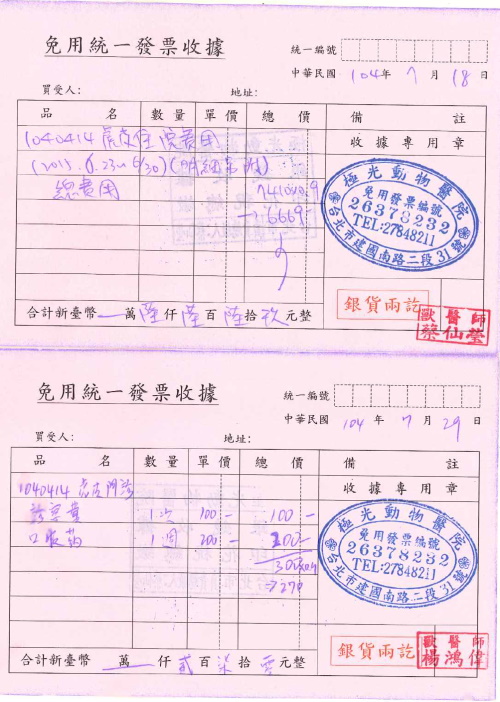 免用統一發票收據
統一編號
中華民國 104年 7月 18日
買受人: 地址:
品名 數量 單價 總價 備註
1040414 住院費用 收據專用章
(2015. 6.23~6/30)
總費用 7410×0.9
→ 6669
極光動物醫院
免用發票編號
26378232
TEL:27848211
台北市建國南路二段31號
銀貨兩訖
獸醫師
蔡仙瑩
合計新臺幣 萬陸仟陸百陸拾玖元整
免用統一發票收據
統一編號
中華民國 104年 7月 29日
買受人: 地址:
品名 數量 單價 總價 備註
1040414 門診 收據專用章
診察費 1次 100- 100-
口服藥 1週 200- 200-
300×0.9
→270
極光動物醫院
免用發票編號
26378232
TEL:27848211
台北市建國南路二段31號
銀貨兩訖
獸醫師
楊鴻偉
合計新臺幣 萬 仟貳百柒拾零元整